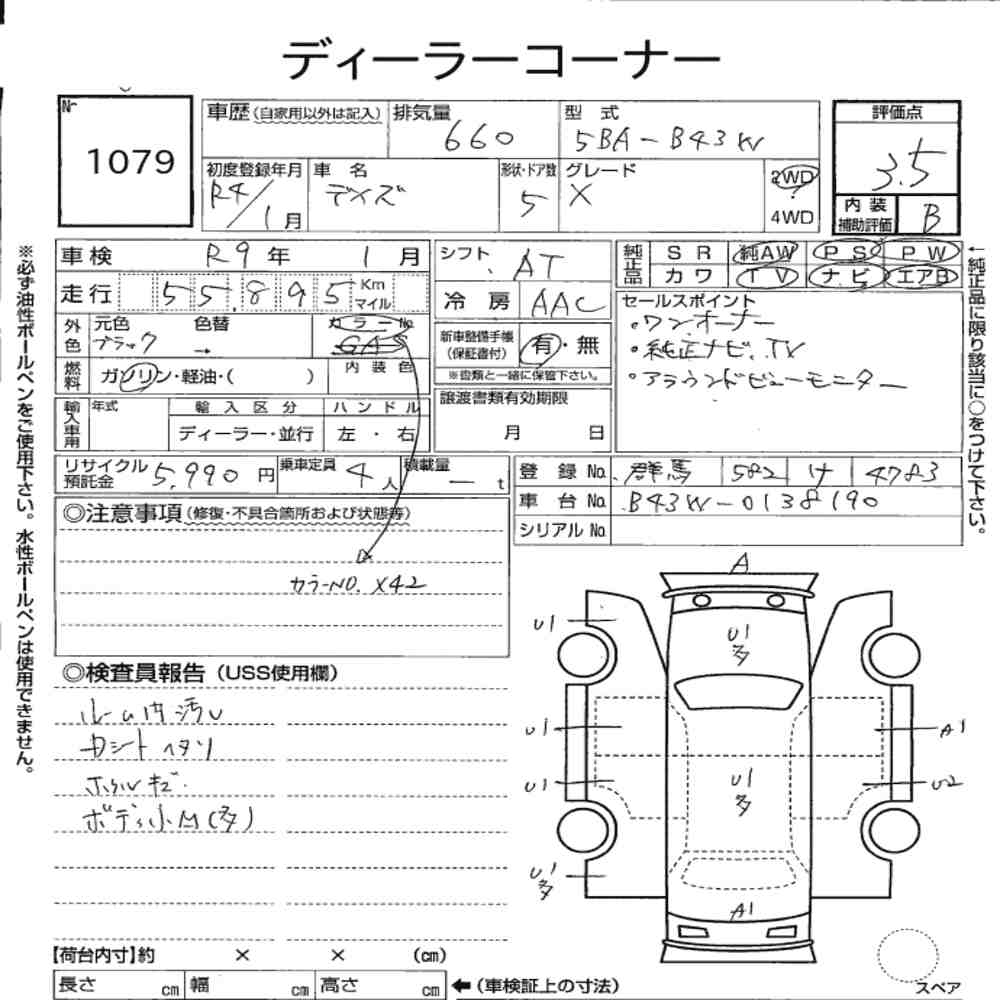 ディーラーコーナー
№ 1079
車歴(自家用以外は記入) 排気量 660 型式 5BA-B43W
初度登録年月 R4/1月 車名 デイズ 形状・ドア数 5 グレード X 2WD 4WD
評価点 3.5
内装補助評価 B
車検 R9年 1月
走行 55,895 Km マイル
外色 元色 ブラック 色替 → カラー№ GAS
燃料 ガソリン・軽油・( ) 内装色
輸入車用 年式 輸入区分 ディーラー・並行 ハンドル 左・右
シフト AT
冷房 AAC
新車整備手帳(保証書付) 有・無
※書類と一緒に保管下さい。
譲渡書類有効期限
月 日
純正品 SR 純AW PS PW
カワ TV ナビ エアB
セールスポイント
・ワンオーナー
・純正ナビ、TV
・アラウンドビューモニター
リサイクル預託金 5,990円 乗車定員 4人 積載量 ー t
登録№ 群馬 582 け 4783
車台№ B43W-0138190
シリアル№
◎注意事項(修復・不具合箇所および状態等)
カラーNO. X42
◎検査員報告(USS使用欄)
ルーム内汚レ
シートヘタリ
ホイルキズ
ボディ小M(多)
A
U1
U1 多
U1
A1
U1
U1 多
U2
U1 多
A1
【荷台内寸】約 × × (cm)
長さ cm 幅 cm 高さ cm ←(車検証上の寸法)
スペア
※必ず油性ボールペンをご使用下さい。水性ボールペンは使用できません。
←純正品に限り該当に○をつけて下さい。